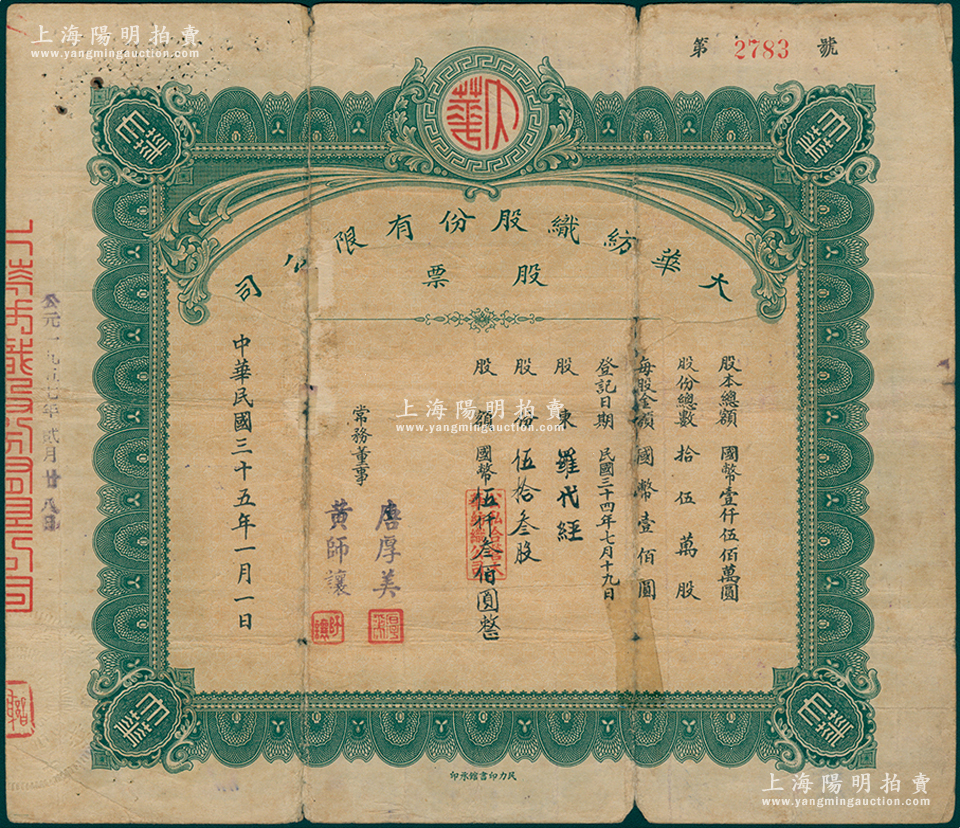 上海陽明拍賣
www.yangmingauction.com
第 2783 號
大華
大華紡織股份有限公司
股票
股本總額 國幣壹仟伍佰萬圓
股份總數 拾伍萬股
每股金額 國幣壹佰圓
登記日期 民國三十四年七月十九日
股東 羅代經
股份 伍拾叁股
股額 國幣伍仟叁佰圓整
常務董事
唐厚美
黃師讓
中華民國三十五年一月一日
公元一九五七年貳月廿八日
上海陽明拍賣
www.yangmingauction.com
民力印書館承印
上海陽明拍賣
www.yangmingauction.com